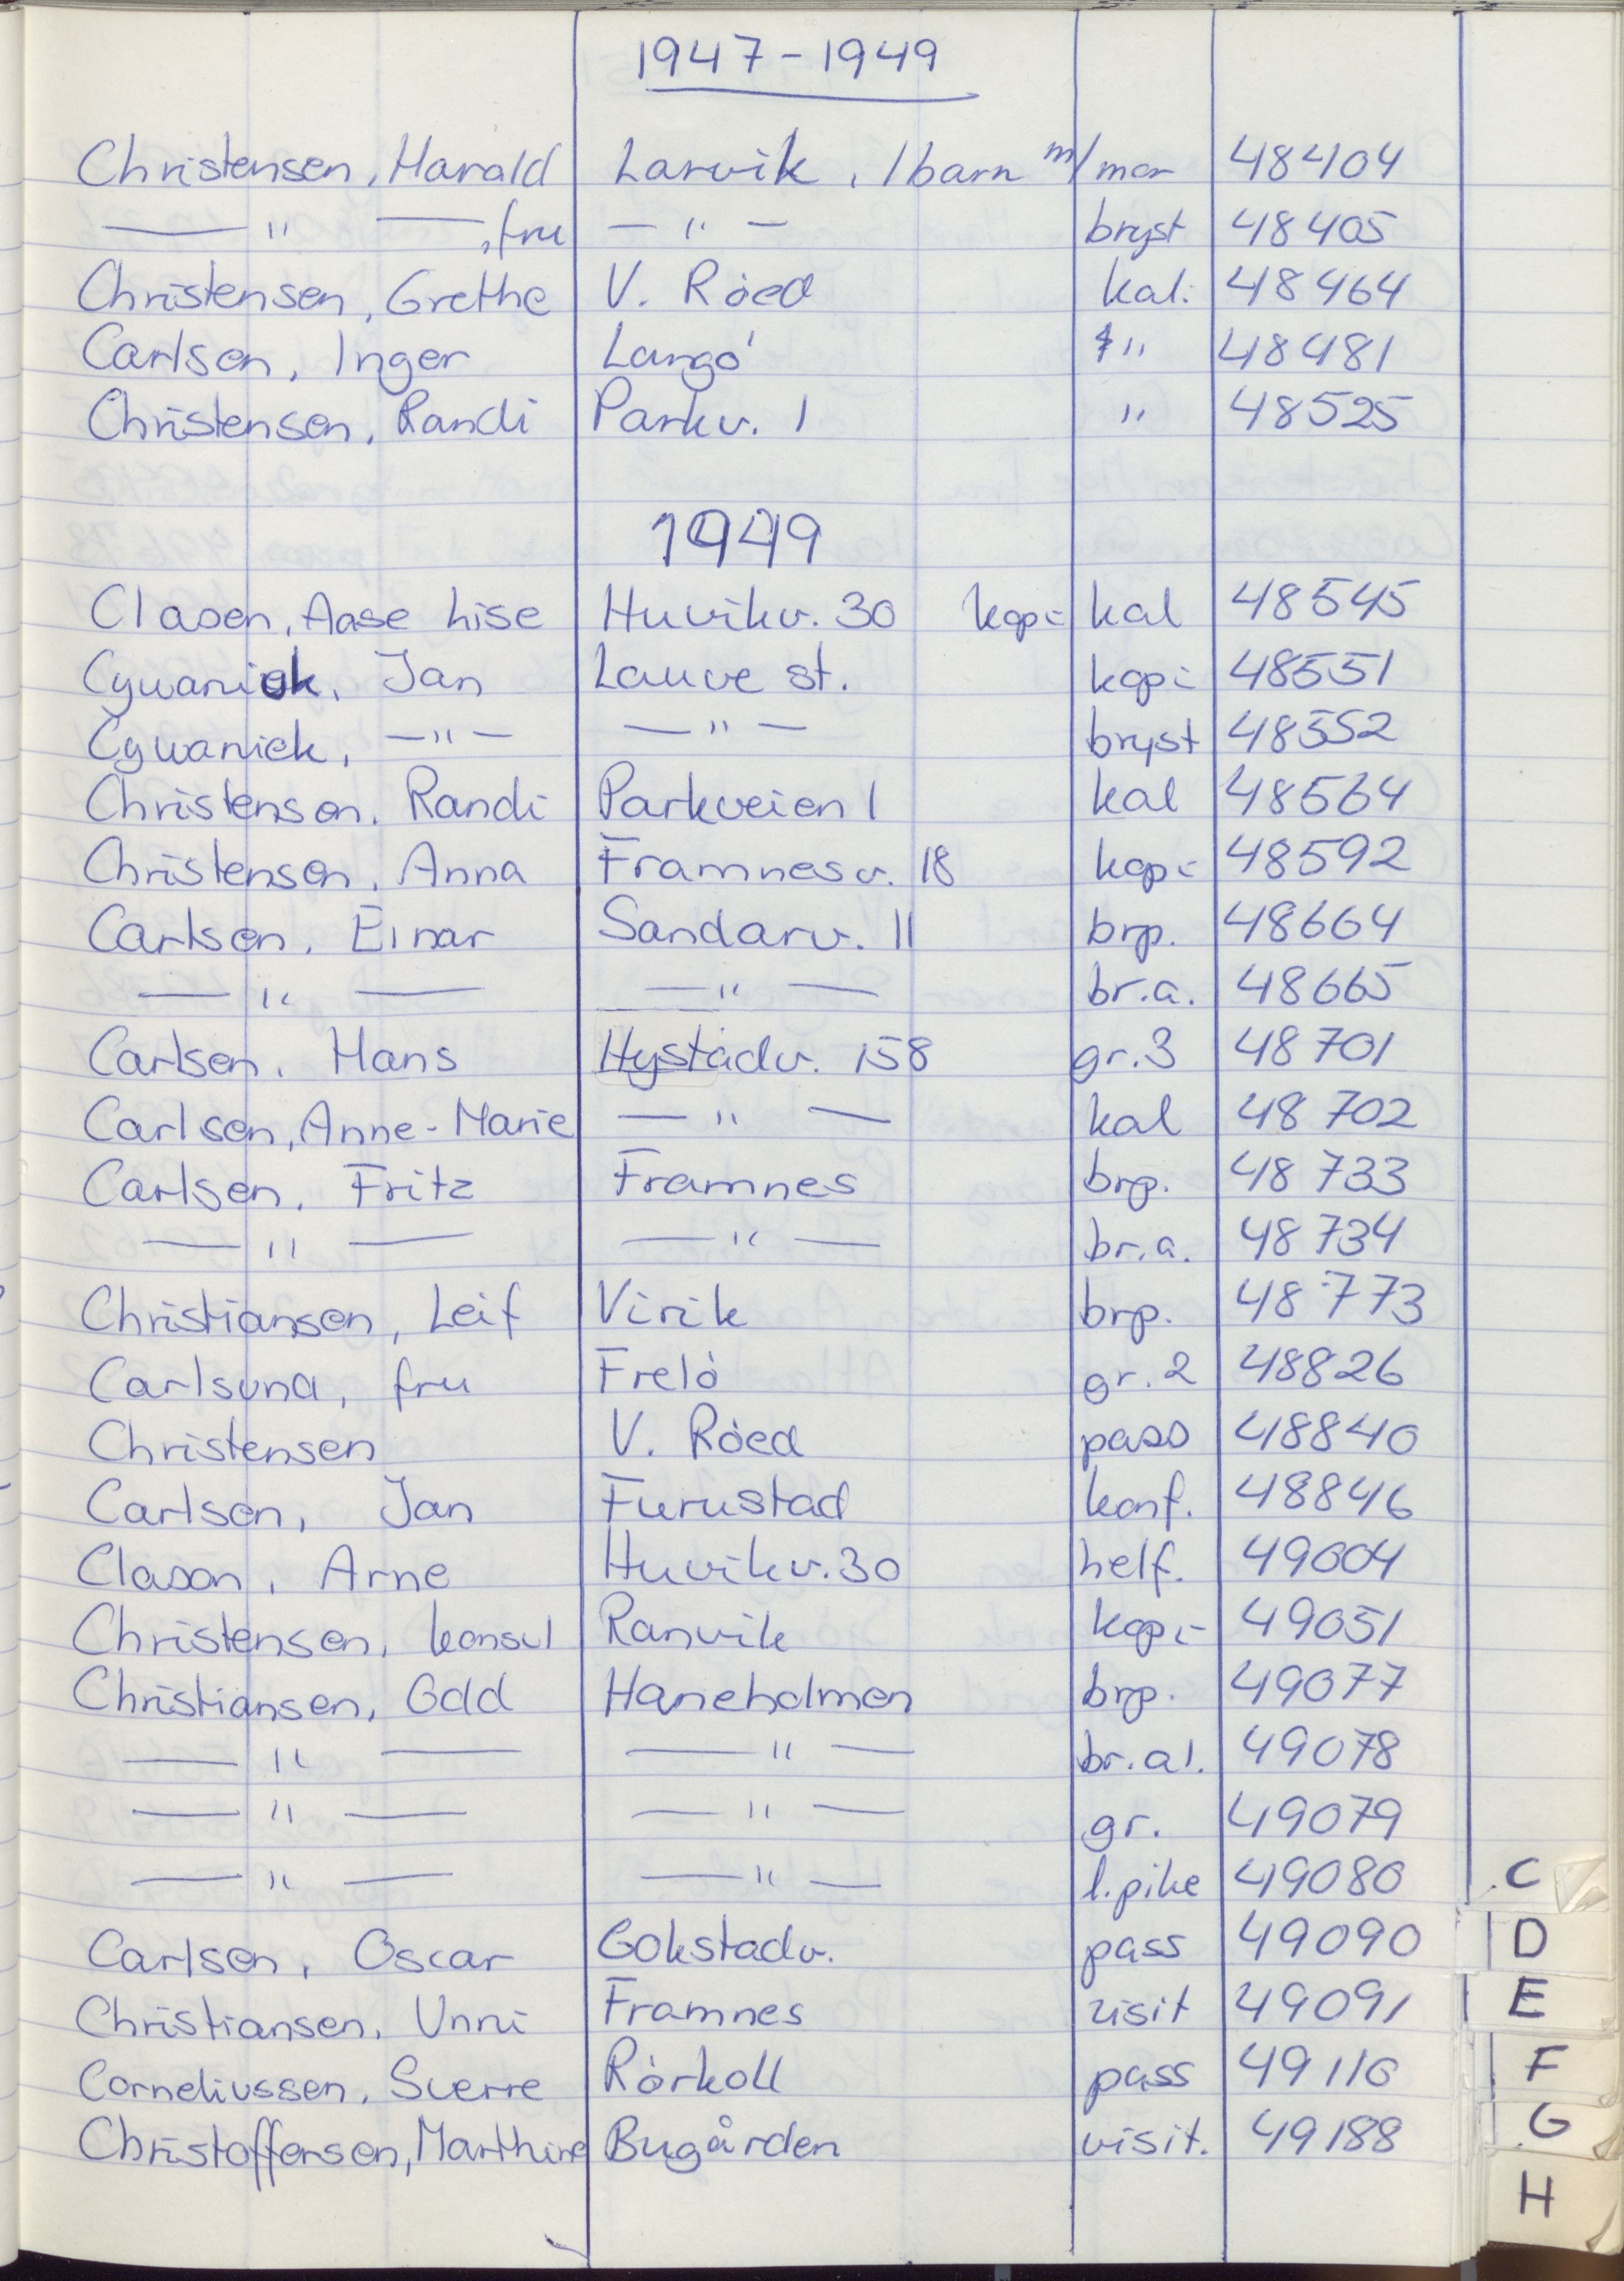 1947-1949
Christensen, Harald Larvik, 1 barn m/mor 48404
— " —, fru — " — bryst 48405
Christensen, Grethe V. Röed kal. 48464
Carlsen, Inger Langö " 48481
Christensen, Randi Parkv. 1 " 48525
1949
Clasen, Aase Lise Huvikv. 30 kopi kal 48545
Cywaniek, Jan Lauve st. kopi 48551
Cywaniek, — " — — " — bryst 48552
Christensen, Randi Parkveien 1 kal 48564
Christensen, Anna Framnesv. 18 kopi 48592
Carlsen, Einar Sandarv. 11 brp. 48664
— " — — " — br.a. 48665
Carlsen, Hans Hystadv. 158 gr.3 48701
Carlsen, Anne-Marie — " — kal 48702
Carlsen, Fritz Framnes brp. 48733
— " — — " — br.a. 48734
Christiansen, Leif Virik brp. 48773
Carlsund, fru Frelö gr.2 48826
Christensen V. Röed pass 48840
Carlsen, Jan Furustad konf. 48846
Clason, Arne Huvikv. 30 helf. 49004
Christensen, konsul Ranvik kopi 49051
Christiansen, Odd Haneholmen brp. 49077
— " — — " — br.al. 49078
— " — — " — gr. 49079
— " — — " — l.pike 49080
C
Carlsen, Oscar Gokstadv. pass 49090
D
Christiansen, Unni Framnes visit 49091
E
Corneliussen, Sverre Rörkoll pass 49116
F
Christoffersen, Marthine Bugården visit. 49188
G
H